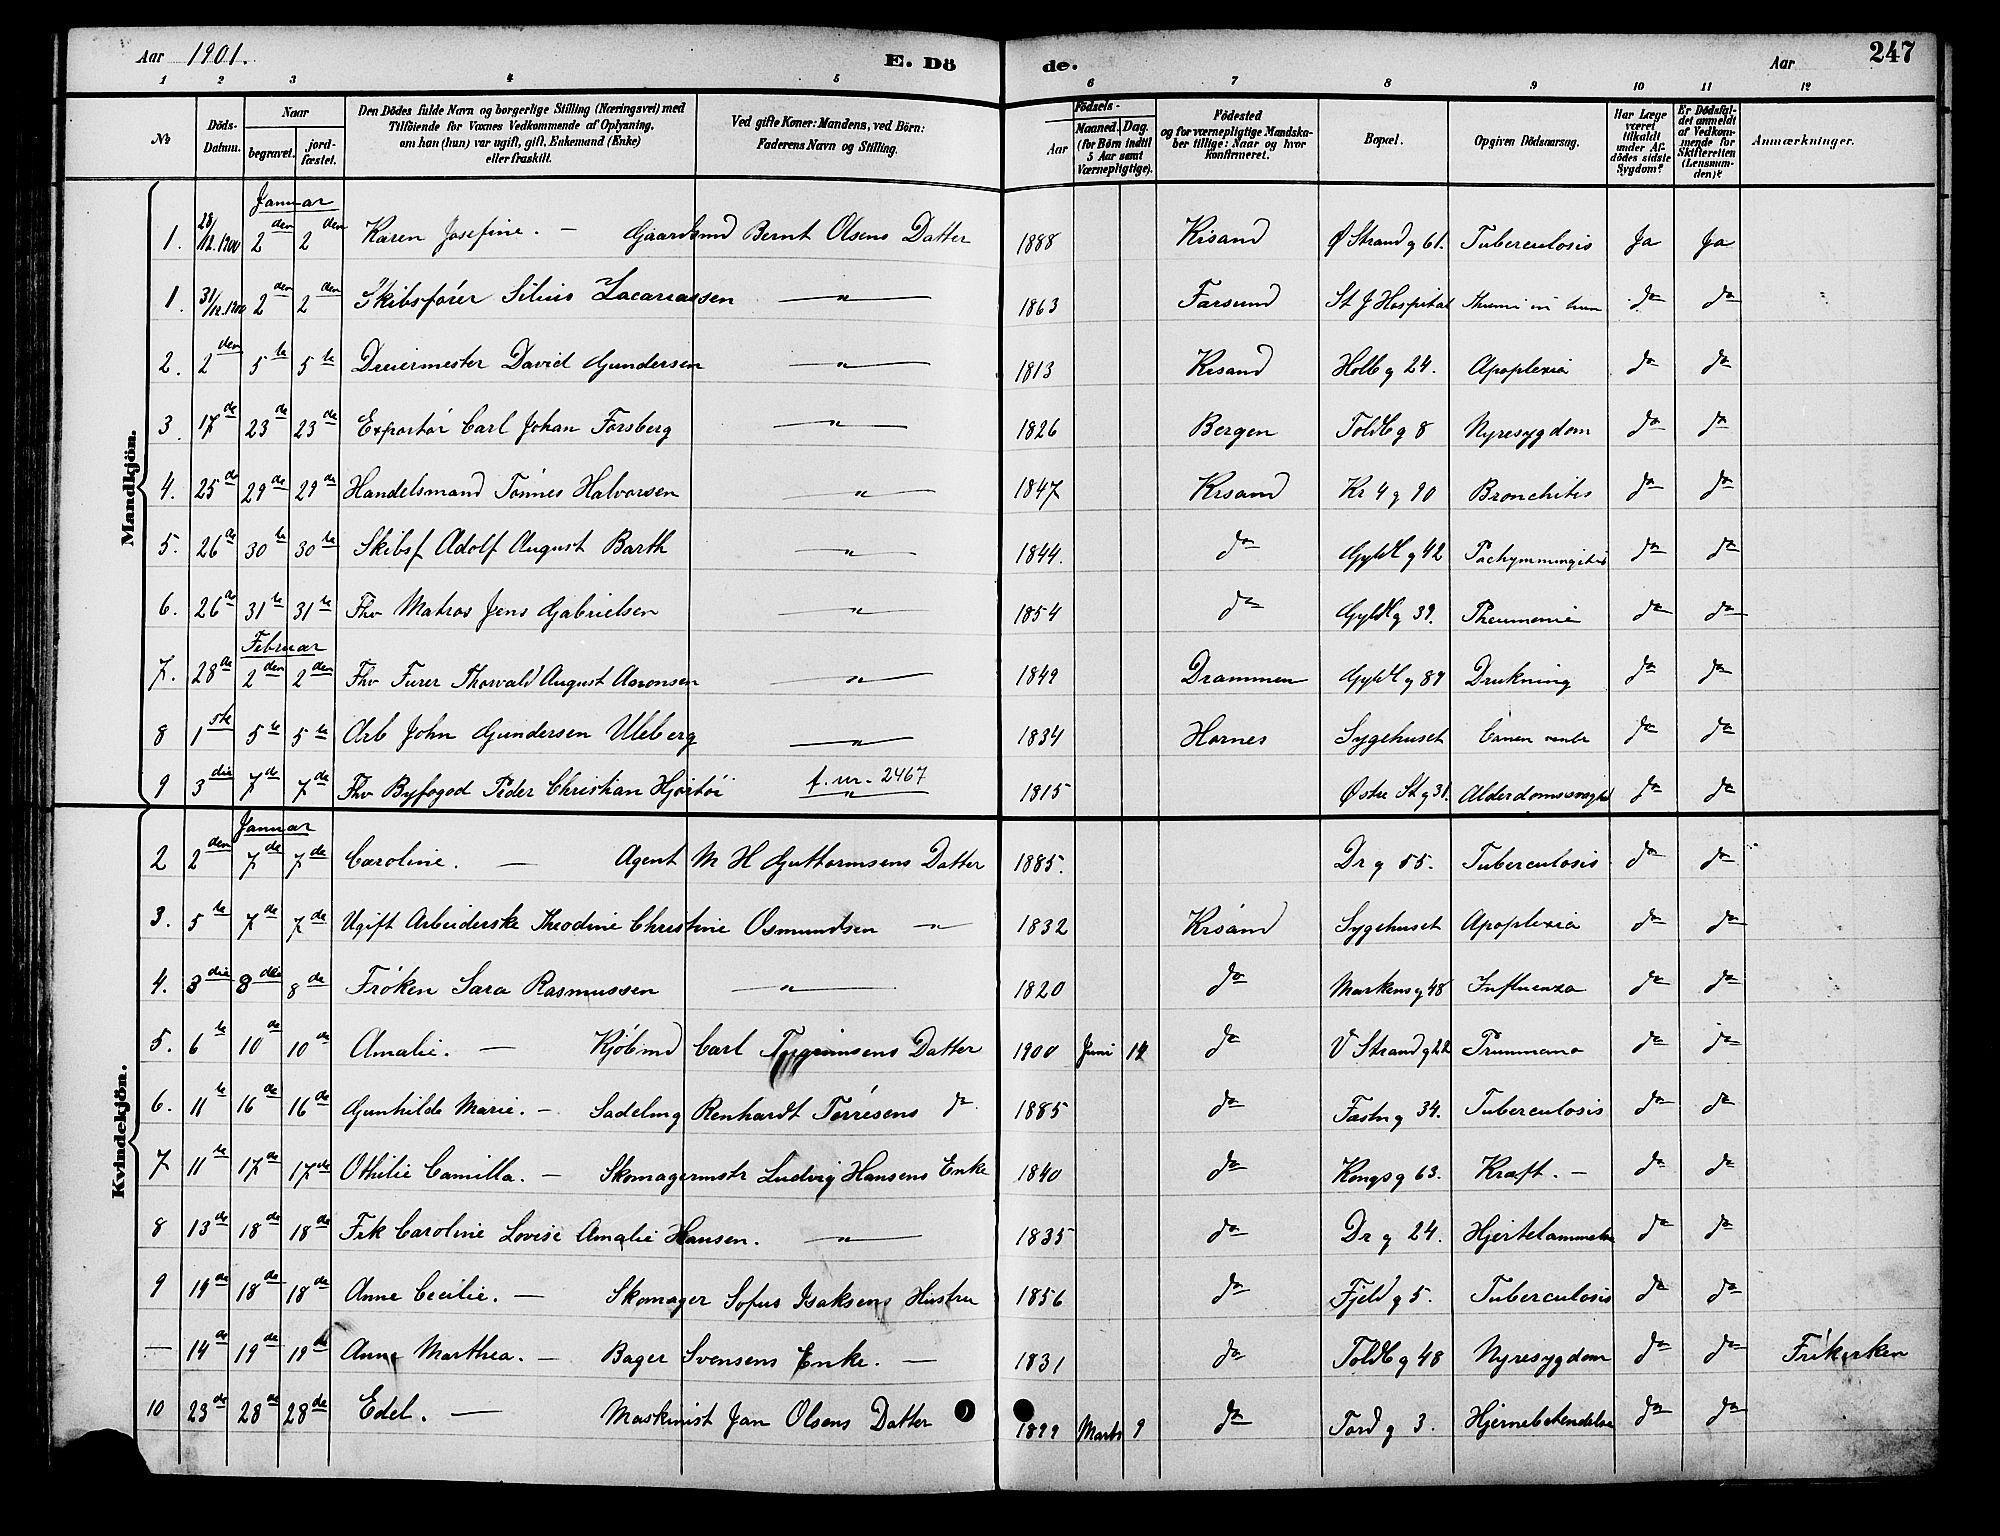 Aar 1901. E. Dö de. Aar 247
1 2 3 4 5 6 7 8 9 10 11 12
№ Döds-Datum. Naar begravet. jordfæstet. Den Dödes fulde Navn og borgerlige Stilling (Næringsvei) med Tilföiende for Voxnes Vedkommende af Oplysning, om han (hun) var ugift, gift, Enkemand (Enke) eller fraskilt. Ved gifte Koner: Mandens, ved Börn: Faderens Navn og Stilling. Födsels- Aar Maaned. Dag. (for Börn indtil 5 Aar samt Værnepligtige). Födested og for værnepligtige Mandskaber tillige: Naar og hvor konfirmeret. Bopæl. Opgiven Dödsaarsag. Har Læge været tilkaldt under Afdödes sidste Sygdom? Er Dödsfaldet anmeldt af Vedkommende for Skifteretten (Lensmanden)? Anmærkninger.
Mandkjön.
Januar
1. 28/12.1900 2den 2den Karen Josefine. — Gaardsmd Bernt Olsens Datter 1888 Krsand Ø Strand g 61. Tuberculosis Ja Ja
1. 31/12.1900 2den 2den Skibsfører Silius Zacariassen — " — 1863 Farsund St J Hospital do do
2. 2den 5te 5te Dreiermester David Gundersen — " — 1813 Krsand Holb g 24. Apoplexia do do
3. 17de 23de 23de Exportør Carl Johan Forsberg — " — 1826 Bergen Toldb g 8 Nyresygdom do do
4. 25de 29de 29de Handelsmand Tønnes Halvorsen — " — 1847 Krsand Kr 4 g 90 Bronchitis do do
5. 26de 30te 30te Skibsf Adolf August Barth — " — 1844. do Gyldl g 42 do do
6. 26de 31te 31te Fhv Matros Jens Gabrielsen — " — 1854 do Gyldl g 39. Pneumonie do do
Februar
7. 28de 2den 2den Fhv Furer Thorvald August Aaronsen — " — 1849 Drammen Gyldl g 89 Drukning do do
8 1ste 5te 5te Arb John Gundersen Uleberg — " — 1834 Hornes Sygehuset do do
9 3die 7de 7de Fhv Byfogod Peder Christian Hjortöi f. nr. 2467 — " — 1815 Østre St g 31. Alderdomssvaghd do do
Kvindekjön.
Januar
2 2den 7de 7de Caroline. — Agent M H Guttormsens Datter 1885. Dr g 55. Tuberculosis do do
3. 5te 7de 7de Ugift Arbeiderske Theodine Christine Osmundsen — " — 1832 Krsand Sygehuset Apoplexia do do
4. 3die 8de 8de Frøken Sara Rasmussen — " — 1820 do Markens g 48 Influenza do do
5. 6te 10de 10de Amalie. — Kjöbmd Carl Datter 1900 Juni 14 do V Strand g 22 do do
6. 11te 16de 16de Gunhilde Marie. — Sadelmg Renhardt Tørresens do 1885 do Fæstn g 34. Tuberculosis do do
7 11te 17de 17de Othilie Camilla. — Skomagermstr Ludvig Hansens Enke 1840 do Kongs g 63. Kræft. — do do
8 13de 18de 18de Frk Caroline Lovise Amalie Hansen. — " — 1835 do Dr g 24. Hjertelammelse do do
9 14de 18de 18de Anne Cecilie. — Skomager Sofus Isaksens Hustru 1856 do Fjeld g 5. Tuberculosis do do
— 14de 19de 19de Anne Marthea. — Bager Svensens Enke. — 1831 do Toldb g 48 Nyresygdom do do Frikirken
10 23de 28de 28de Edel. — Maskinist Jan Olsens Datter 1899 Marts 9 do Tord g 3. Hjernebetendelse do do